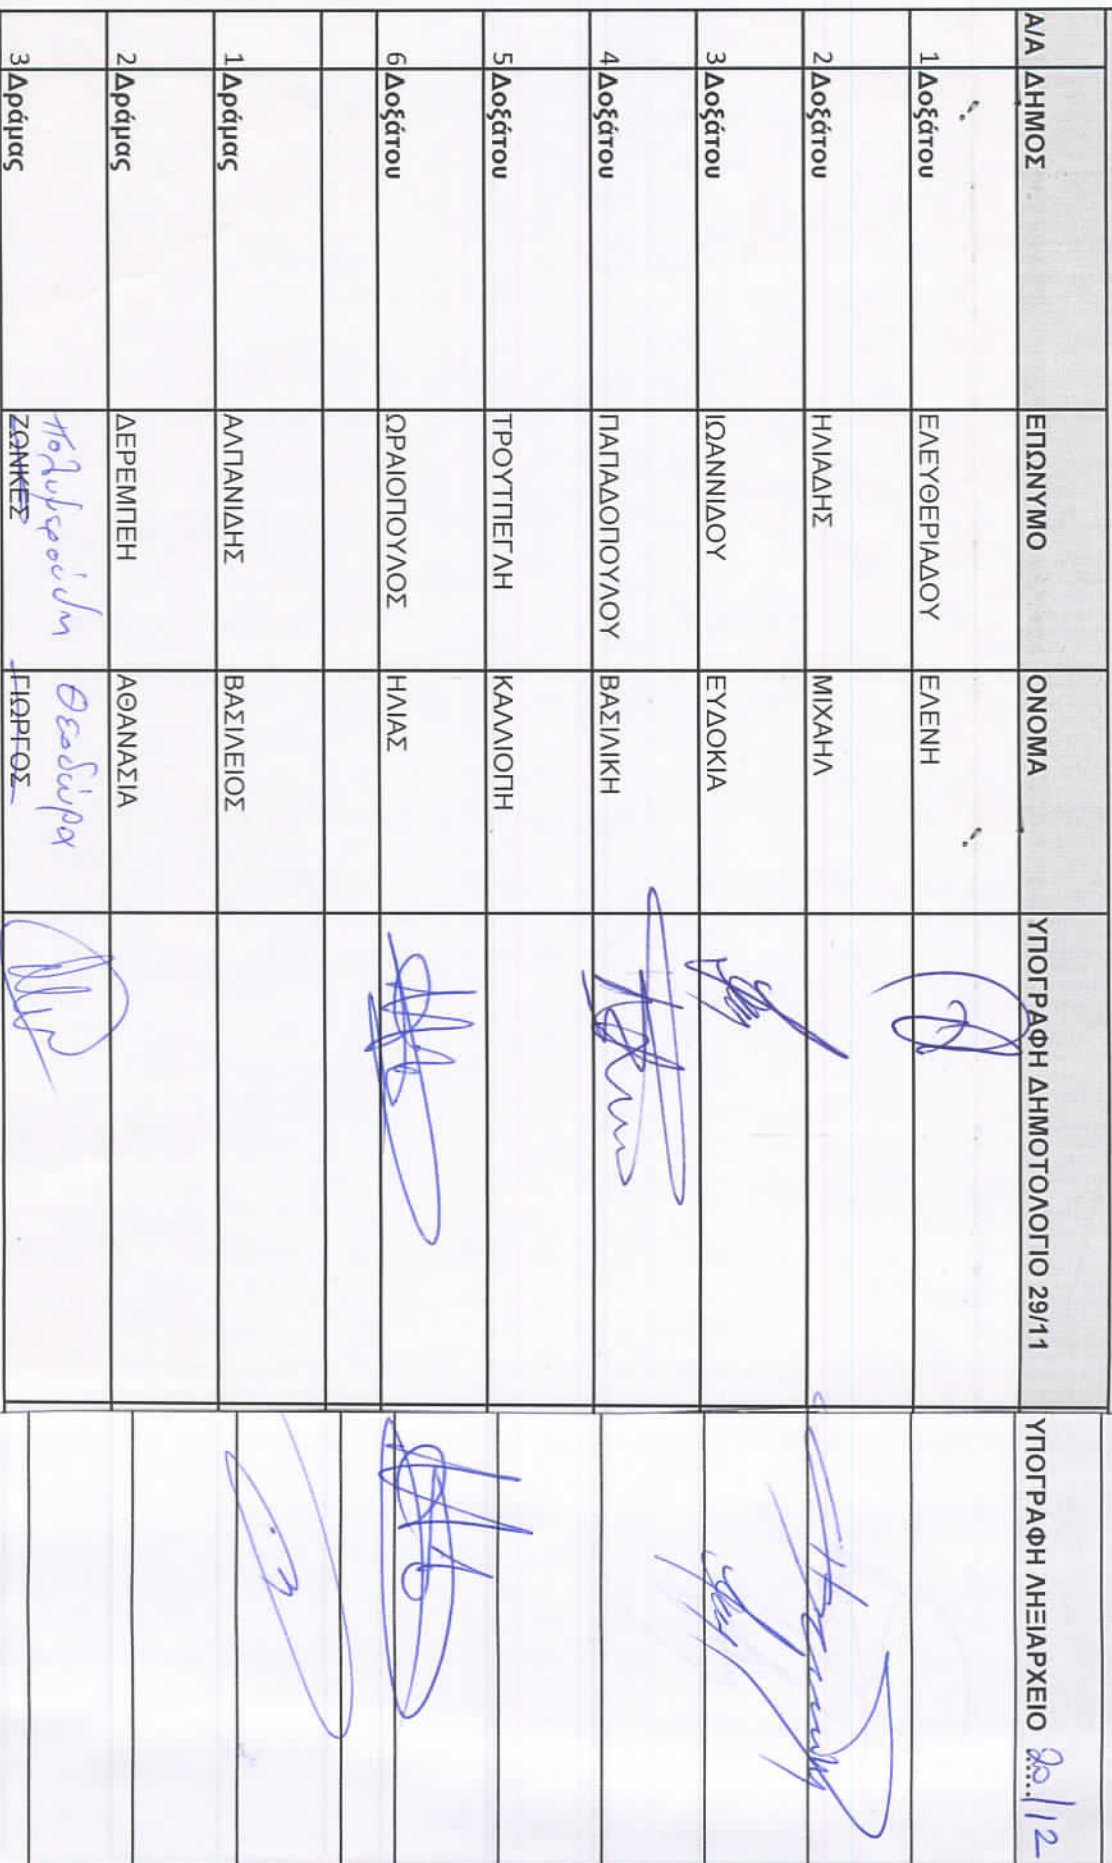 Α/Α ΔΗΜΟΣ ΕΠΩΝΥΜΟ ΟΝΟΜΑ ΥΠΟΓΡΑΦΗ ΔΗΜΟΤΟΛΟΓΙΟ 29/11 ΥΠΟΓΡΑΦΗ ΛΗΞΙΑΡΧΕΙΟ 20/12
1 Δοξάτου ΕΛΕΥΘΕΡΙΑΔΟΥ ΕΛΕΝΗ
2 Δοξάτου ΗΛΙΑΔΗΣ ΜΙΧΑΗΛ
3 Δοξάτου ΙΩΑΝΝΙΔΟΥ ΕΥΔΟΚΙΑ
4 Δοξάτου ΠΑΠΑΔΟΠΟΥΛΟΥ ΒΑΣΙΛΙΚΗ
5 Δοξάτου ΤΡΟΥΤΠΕΓΛΗ ΚΑΛΛΙΟΠΗ
6 Δοξάτου ΩΡΑΙΟΠΟΥΛΟΣ ΗΛΙΑΣ
1 Δράμας ΑΛΠΑΝΙΔΗΣ ΒΑΣΙΛΕΙΟΣ
2 Δράμας ΔΕΡΕΜΠΕΗ ΑΘΑΝΑΣΙΑ
Πολυμερούδη Θεοδώρα
3 Δράμας ΖΩΝΚΕΣ ΓΙΩΡΓΟΣ